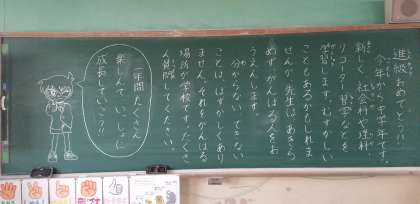 進級おめでとう!!
今年から中学年です。
新しく、社会科や理科、
リコーダー、習字などを
学習します。むずかしい
こともあるかもしれま
せんが、先生はあきら
めず、がんばる人をお
うえんします。
分からない、できない
ことは、はずかしくあり
ません。それをがんばる
場所が学校です。たくさ
ん挑戦してください。
一年間、たくさん
楽しんで、いっしょに
成長していこう!!